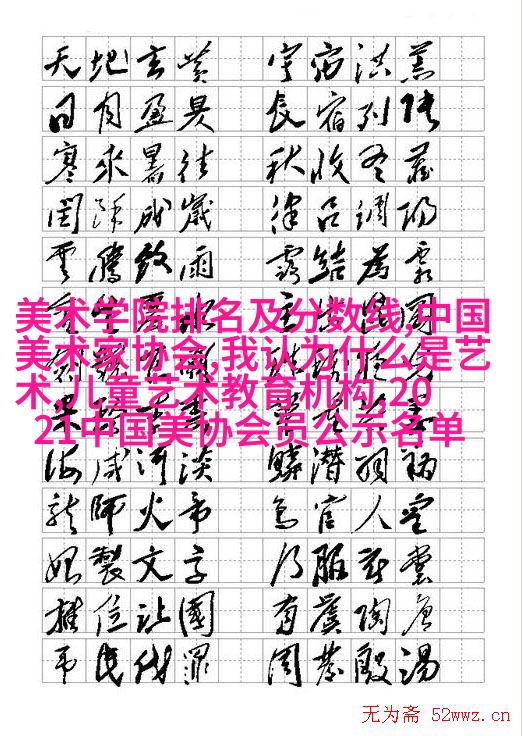 天地玄黄 宇宙洪荒
日月盈昃 辰宿列張
寒來暑往 秋收冬藏
閏餘成歲 律吕調陽
雲騰致雨 露結為霜
美术学院排名及分数线,中国
美术家协会,我认为什么是艺
术,儿童艺术教育机构,20
21中国美协会员公示名单
海咸河淡 鳞潜羽翔
龍師火帝 鳥官人皇
始製文字 乃服衣裳
推位让國 有虞陶唐
吊民伐罪 周發殷湯
无为斋 52wwz.cn